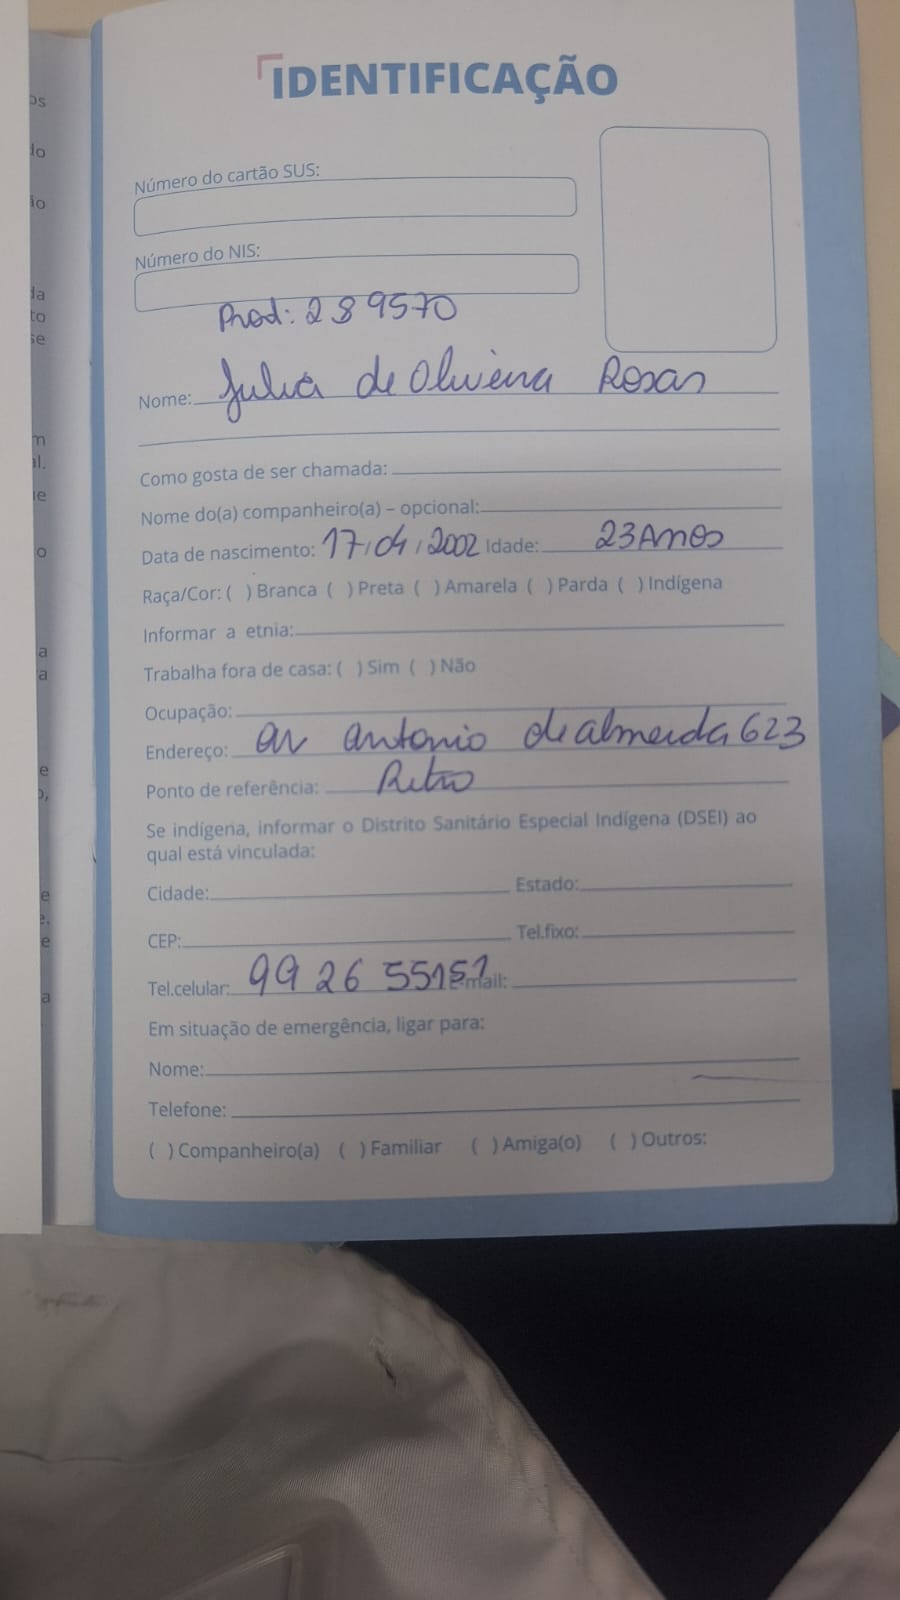 os
do
ão
da
to
se
m
al.
e
o
a
a
e
o,
e
e.
e
a
IDENTIFICAÇÃO
Número do cartão SUS:
Número do NIS:
Prod: 289570
Nome: Julia de Oliveira Rosas
Como gosta de ser chamada:
Nome do(a) companheiro(a) – opcional:
Data de nascimento: 17/04/2002 Idade: 23 Anos
Raça/Cor: ( ) Branca ( ) Preta ( ) Amarela ( ) Parda ( ) Indígena
Informar a etnia:
Trabalha fora de casa: ( ) Sim ( ) Não
Ocupação:
Endereço: av antonio de almeida 623
Ponto de referência: Retro
Se indígena, informar o Distrito Sanitário Especial Indígena (DSEI) ao
qual está vinculada:
Cidade: Estado:
CEP: Tel.fixo:
Tel.celular: 99 26 55151 E-mail:
Em situação de emergência, ligar para:
Nome:
Telefone:
( ) Companheiro(a) ( ) Familiar ( ) Amiga(o) ( ) Outros: